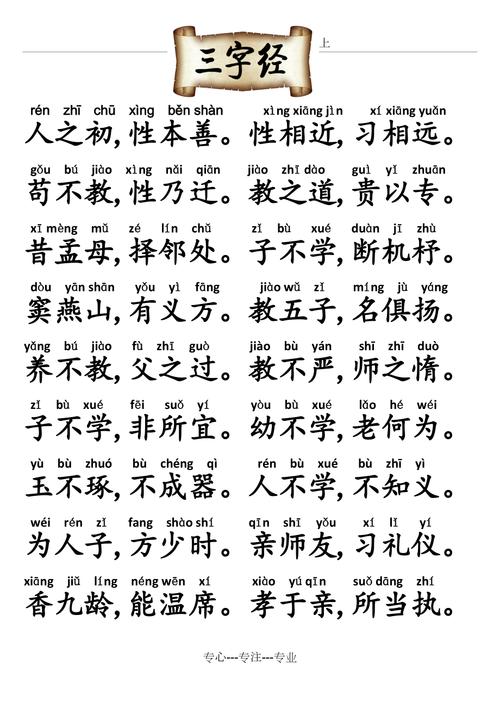 三字经
上
rén zhī chū xìng běn shàn xìng xiāng jìn xí xiāng yuǎn
人之初,性本善。性相近,习相远。
gǒu bú jiào xìng nǎi qiān jiào zhī dào guì yǐ zhuān
苟不教,性乃迁。教之道,贵以专。
xī mèng mǔ zé lín chǔ zǐ bù xué duàn jī zhù
昔孟母,择邻处。子不学,断机杼。
dòu yān shān yǒu yì fāng jiào wǔ zǐ míng jù yáng
窦燕山,有义方。教五子,名俱扬。
yǎng bú jiào fù zhī guò jiào bù yán shī zhī duò
养不教,父之过。教不严,师之惰。
zǐ bù xué fēi suǒ yí yòu bù xué lǎo hé wéi
子不学,非所宜。幼不学,老何为。
yù bù zhuó bù chéng qì rén bù xué bù zhī yì
玉不琢,不成器。人不学,不知义。
wéi rén zǐ fang shào shí qīn shī yǒu xí lǐ yí
为人子,方少时。亲师友,习礼仪。
xiāng jiǔ líng néng wēn xí xiào yú qīn suǒ dāng zhí
香九龄,能温席。孝于亲,所当执。
专心---专注---专业